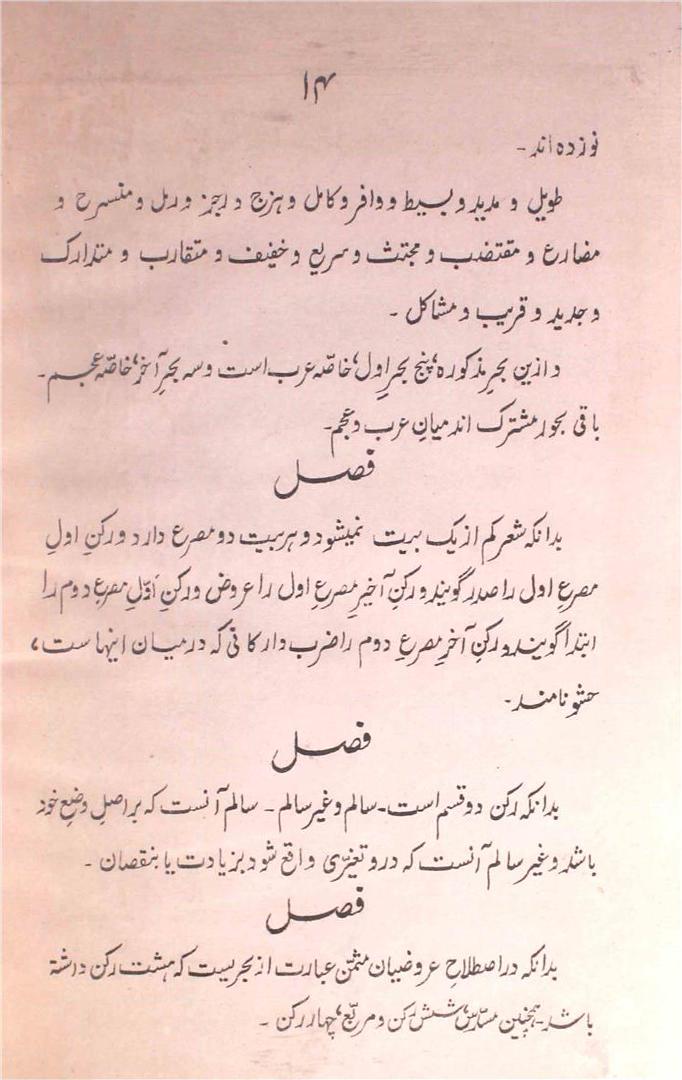 ۱۴
نوزده اند۔
طویل و مدید و بسیط و وافر و کامل و ہزج و رجز و رمل و منسرح و
مضارع و مقتضب و مجتث و سریع و خفیف و متقارب و متدارک
و جدید و قریب و مشاکل ۔
و ازین بحرِ مذکورہ، پنج بحرِ اول، خاصّہ عرب است و سہ بحرِ آخر، خاصّہ عجم۔
باقی بحور مشترک اند میانِ عرب و عجم۔
فصل
بدانکہ شعر کم از یک بیت نمیشود و ہر بیت دو مصرع دارد و رکنِ اولِ
مصرعِ اول را صدر گویند و رکنِ آخیرِ مصرعِ اول را عروض و رکنِ اوّلِ مصرعِ دوم را
ابتدا گویند و رکنِ آخرِ مصرعِ دوم را ضرب دارکانی کہ درمیان اینہاست،
حشو نامند۔
فصل
بدانکہ رکن دو قسم است۔ سالم و غیر سالم ۔ سالم آنست کہ بر اصلِ وضعِ خود
باشد و غیر سالم آنست کہ درو تغیّری واقع شود بزیادت یا بنقصان ۔
فصل
بدانکہ در اصطلاحِ عروضیان مثمّن عبارت از بحریست کہ ہشت رکن داشتہ
باشد۔ ہمچنین مسدّس، شش رکن و مربّع، چہار رکن ۔